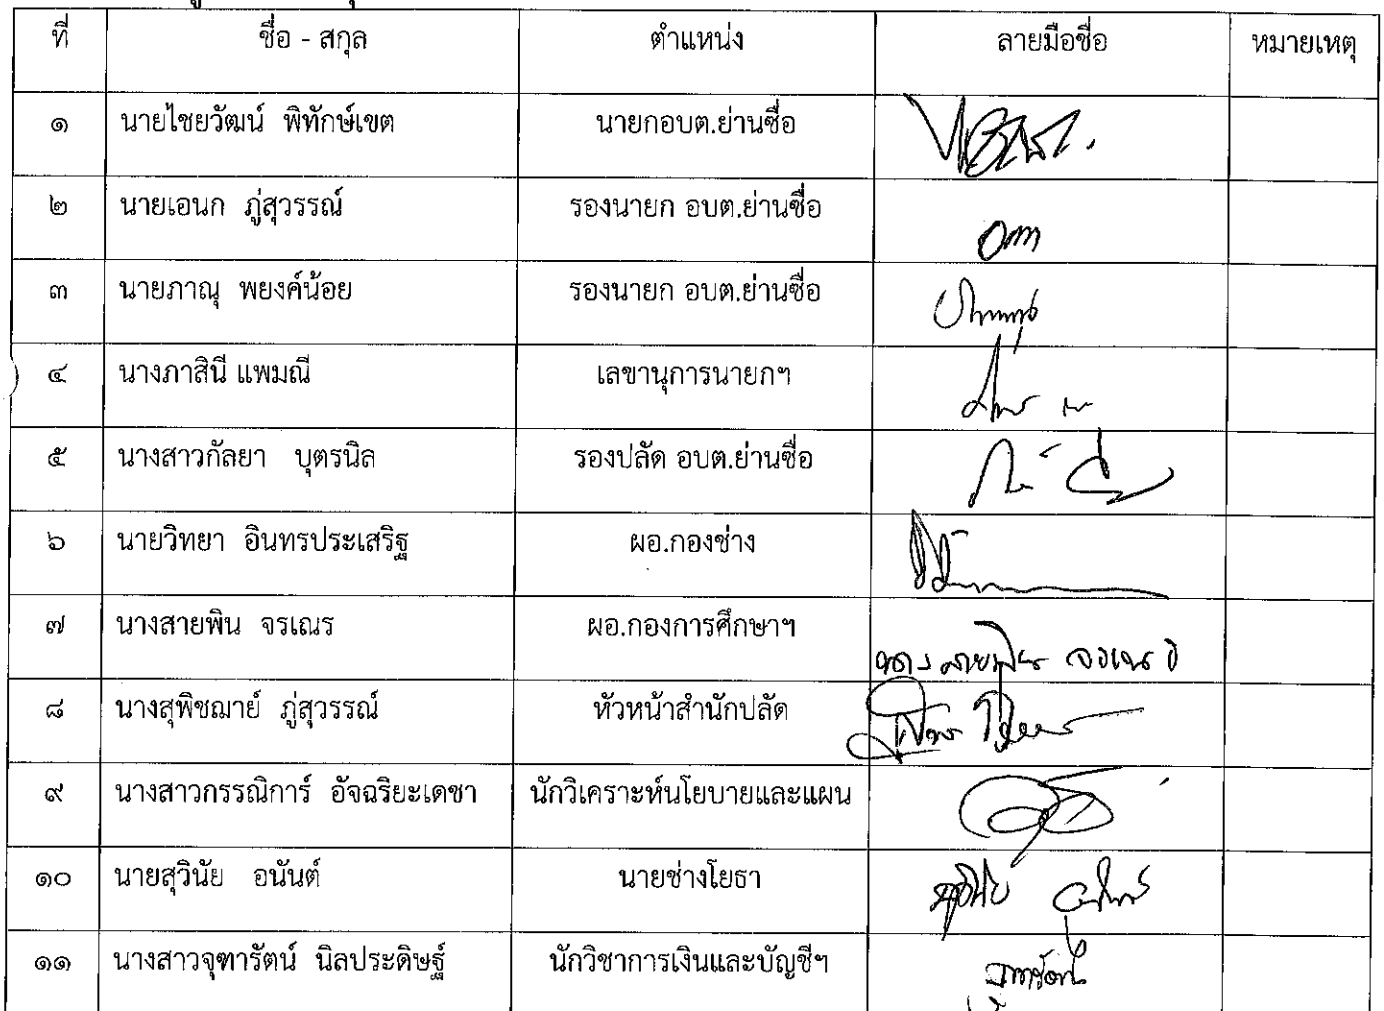 ที่ ชื่อ - สกุล ตำแหน่ง ลายมือชื่อ หมายเหตุ
๑ นายไชยวัฒน์ พิทักษ์เขต นายกอบต.ย่านซื่อ
๒ นายเอนก ภู่สุวรรณ์ รองนายก อบต.ย่านซื่อ
๓ นายภาณุ พยงค์น้อย รองนายก อบต.ย่านซื่อ
๔ นางภาสินี แพมณี เลขานุการนายกฯ
๕ นางสาวกัลยา บุตรนิล รองปลัด อบต.ย่านซื่อ
๖ นายวิทยา อินทรประเสริฐ ผอ.กองช่าง
๗ นางสายพิน จรเณร ผอ.กองการศึกษาฯ นางสายพิน จรเณร
๘ นางสุพิชฌาย์ ภู่สุวรรณ์ หัวหน้าสำนักปลัด
๙ นางสาวกรรณิการ์ อัจฉริยะเดชา นักวิเคราะห์นโยบายและแผน
๑๐ นายสุวินัย อนันต์ นายช่างโยธา สุวินัย
๑๑ นางสาวจุฑารัตน์ นิลประดิษฐ์ นักวิชาการเงินและบัญชีฯ จุฑารัตน์